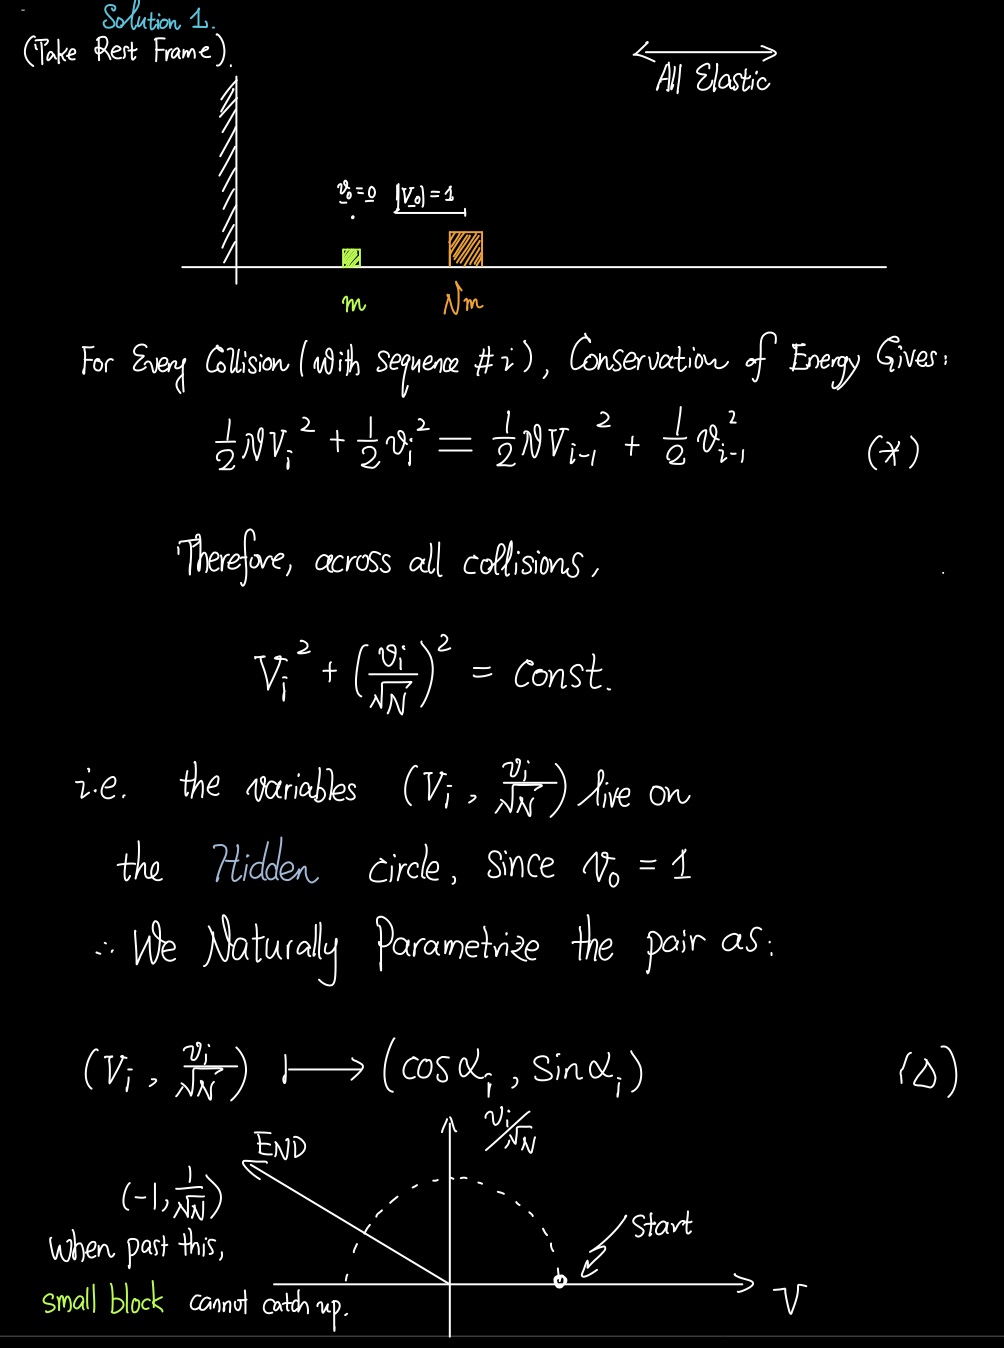 Solution 1.
(Take Rest Frame).
All Elastic
v₀ = 0 |V₀| = 1
m Nm
For Every Collision (with sequence # i), Conservation of Energy Gives:
½NVᵢ² + ½vᵢ² = ½NVᵢ₋₁² + ½vᵢ₋₁² (*)
Therefore, across all collisions,
Vᵢ² + (vᵢ/√N)² = Const.
i.e. the variables (Vᵢ, vᵢ/√N) live on
the Hidden circle, since v₀ = 1
∴ We Naturally Parametrize the pair as:
(Vᵢ, vᵢ/√N) ⟼ (cosαᵢ, Sinαᵢ) (Δ)
vᵢ/√N
END
(-1, 1/√N)
Start
When past this,
small block cannot catch up.
V